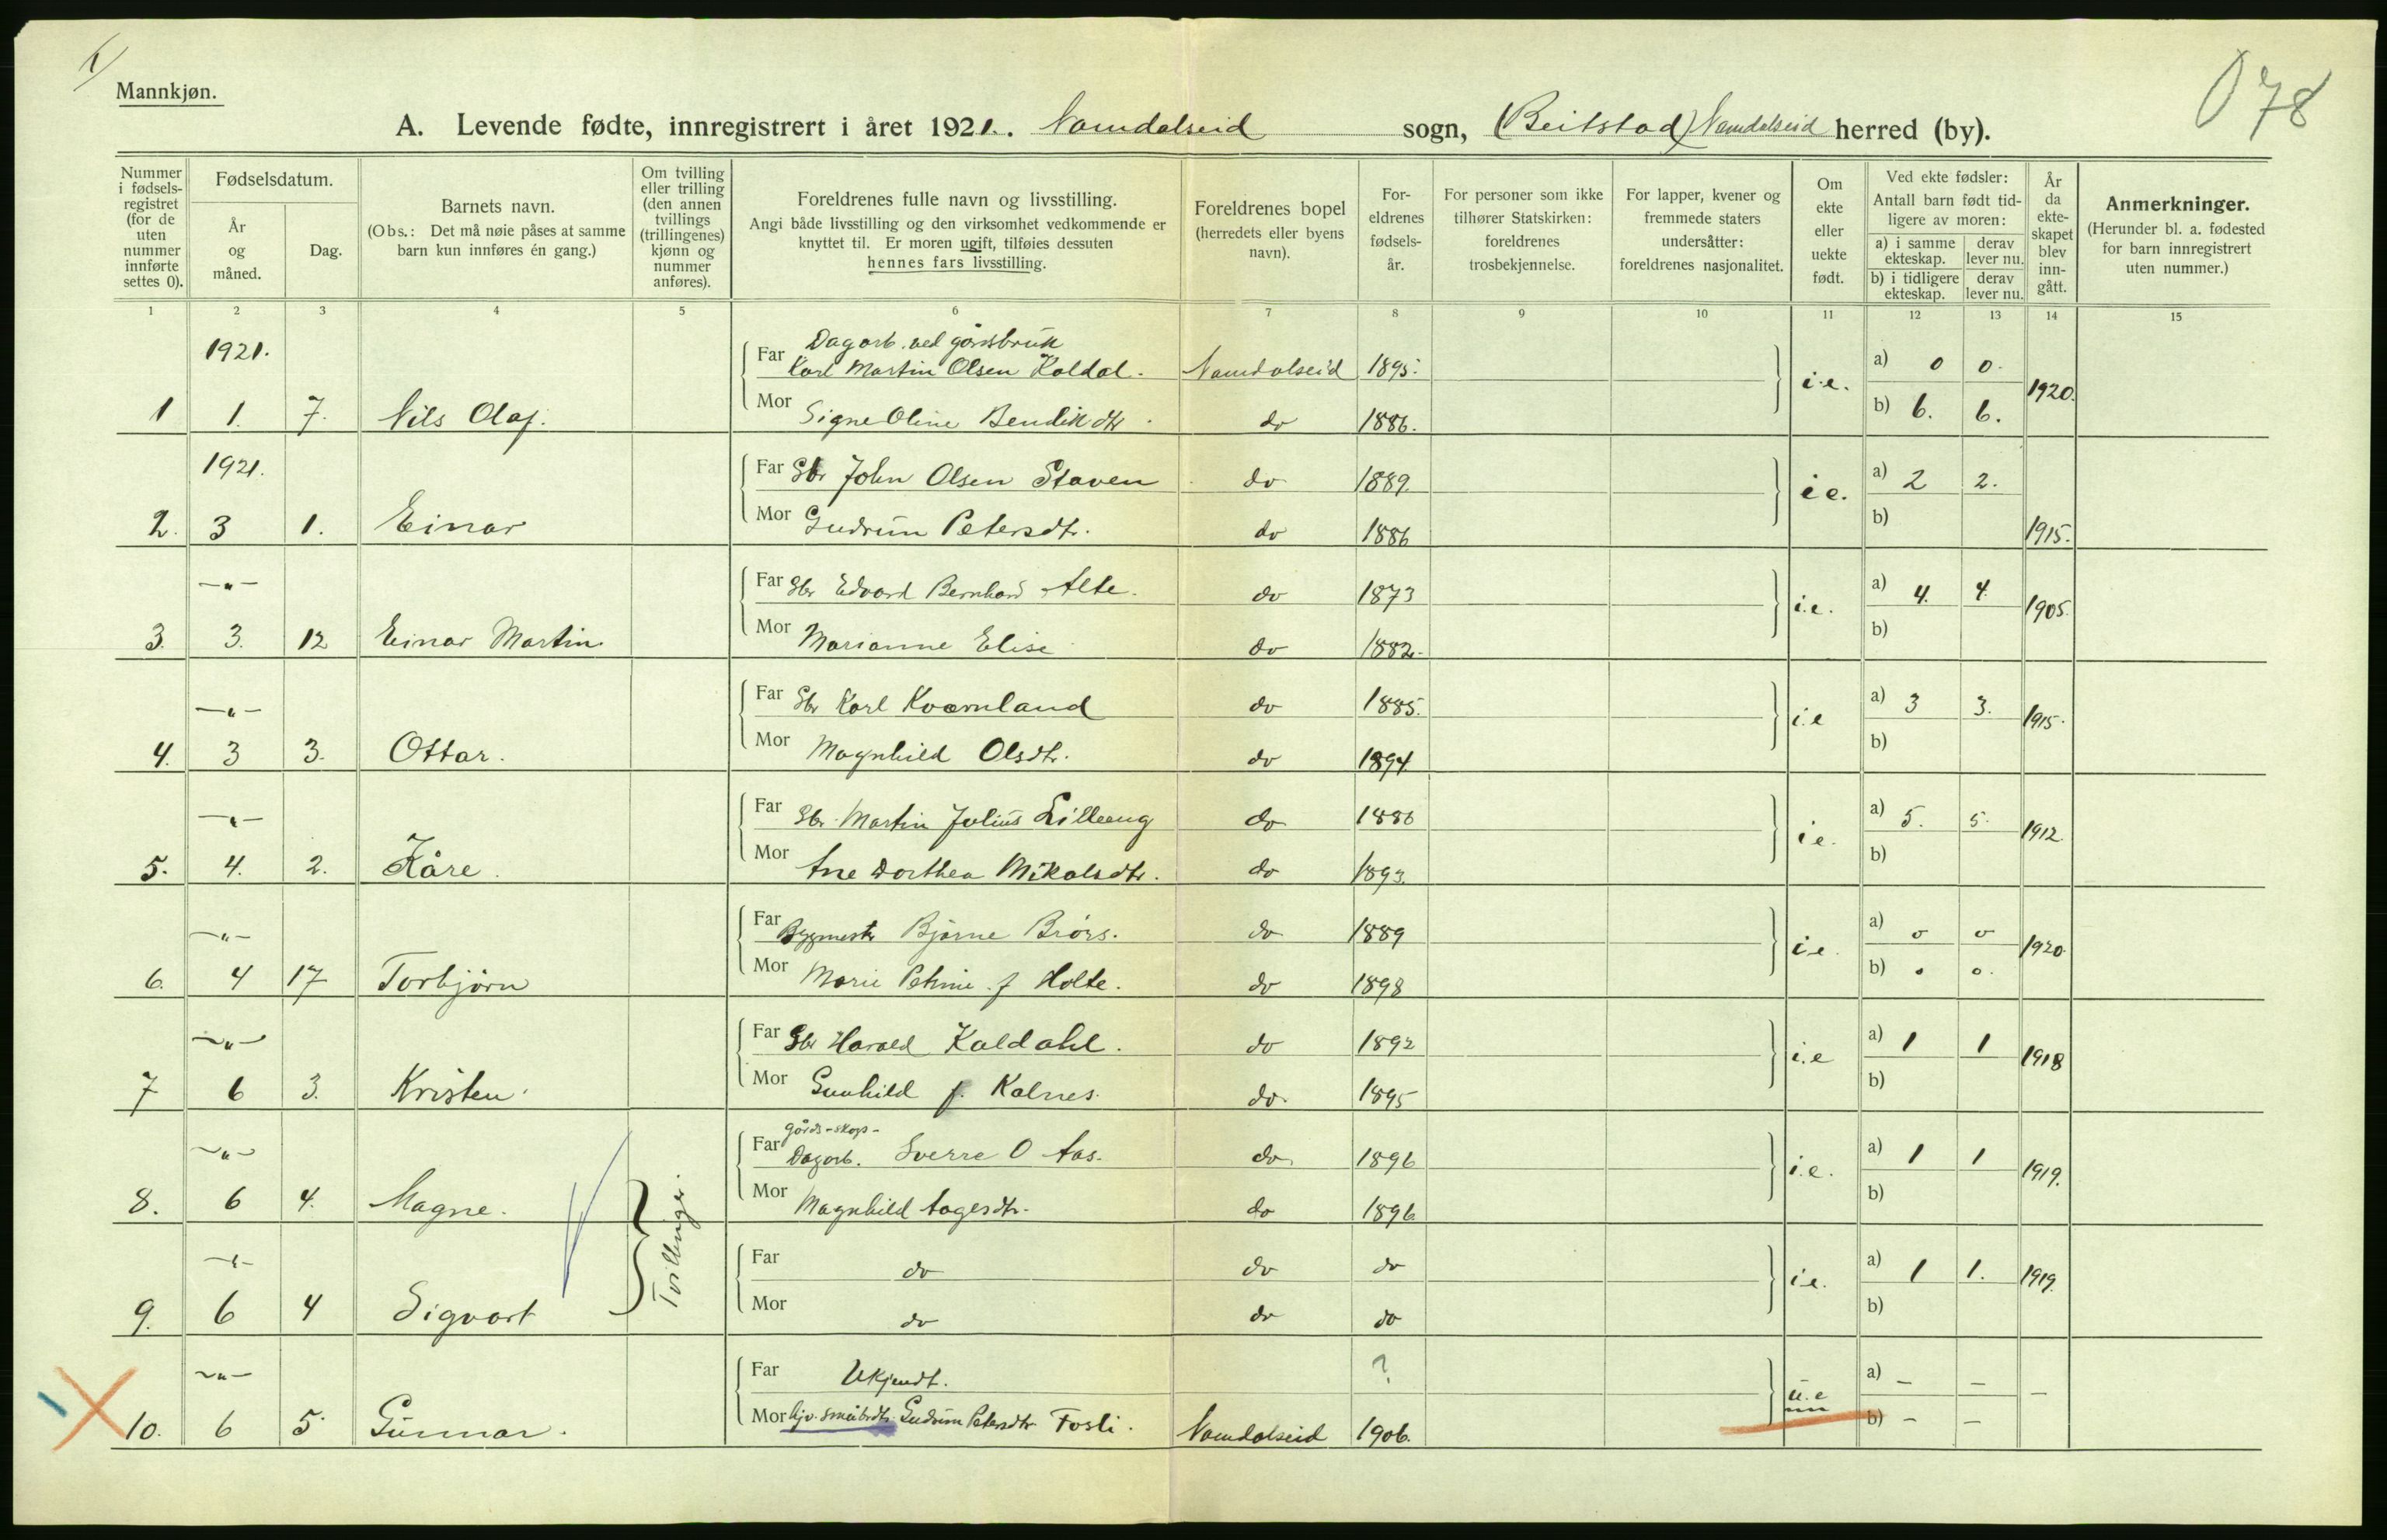 1)
078
Mannkjøn.
A. Levende fødte, innregistrert i året 1921. Namdalseid sogn, (Beitstad) Namdalseid herred (by).
Nummer i fødsels-registret (for de uten nummer innførte settes 0).
Fødselsdatum.
År og måned.
Dag.
Barnets navn.
(Obs.: Det må nøie påses at samme barn kun innføres én gang.)
Om tvilling eller trilling (den annen tvillings (trillingenes) kjønn og nummer anføres).
Foreldrenes fulle navn og livsstilling.
Angi både livsstilling og den virksomhet vedkommende er knyttet til. Er moren ugift, tilføies dessuten hennes fars livsstilling.
Foreldrenes bopel (herredets eller byens navn).
For-eldrenes fødsels-år.
For personer som ikke tilhører Statskirken: foreldrenes trosbekjennelse.
For lapper, kvener og fremmede staters undersåtter: foreldrenes nasjonalitet.
Om ekte eller uekte født.
Ved ekte fødsler:
Antall barn født tid-ligere av moren:
a) i samme ekteskap. derav lever nu.
b) i tidligere ekteskap. derav lever nu.
År da ekte-skapet blev inn-gått.
Anmerkninger.
(Herunder bl. a. fødested for barn innregistrert uten nummer.)
1 2 3 4 5 6 7 8 9 10 11 12 13 14 15
1921. Far Dagarb. ved gårdsbruk
Karl Martin Olsen Kaldal. Namdalseid 1895. i.e. a) 0 0. 1920.
1 1. 7. Nils Olaf. Mor Signe Oline Bendikdtr. do 1886. b) 6. 6.
1921. Far Gbr John Olsen Staven do 1889. i e. a) 2 2.
2. 3 1. Einar Mor Gudrun Petersdtr. do 1886 b) 1915.
-"- Far Gbr Edvard Bernhard Alte. do 1873 i.e. a) 4. 4. 1905.
3. 3. 12 Einar Martin. Mor Marianne Elise do 1882. b)
-"- Far Gbr Karl Kværnland do 1885. i.e a) 3 3. 1915.
4. 3 3. Ottar. Mor Magnhild Olsdtr. do 1894. b)
-"- Far Gbr. Martin Julius Lilleeng do 1886 i e. a) 5. 5. 1912.
5. 4. 2. Kåre. Mor Ane Dorthea Mikalsdtr. do 1893. b)
-"- Far Byggmestr Bjarne Brørs. do 1889 i.e. a) 0 0 1920.
6. 4 17 Torbjørn Mor Marie Petrine f Holte. do 1898 b) 0 0.
-"- Far Gbr Harald Kaldahl. do 1892 i.e a) 1 1 1918
7 6 3. Kristen. Mor Gunhild f. Kalnes. do. 1895 b)
-"- Far gårds-skogs-
Dagarb. Sverre O Aas. do 1896 i.e. a) 1 1 1919.
8. 6 4. Magne. Tvillinger. Mor Magnhild Aagesdtr. do 1896. b)
-"- Far do do do i.e. a) 1 1. 1919.
9. 6 4 Sigvart Mor do do do b)
-"- Far Ukjendt. ? u.e a) - - -
10. 6 5. Gunnar. Mor Gudrun Petersdtr Fosli. Namdalseid 1906. b) - -